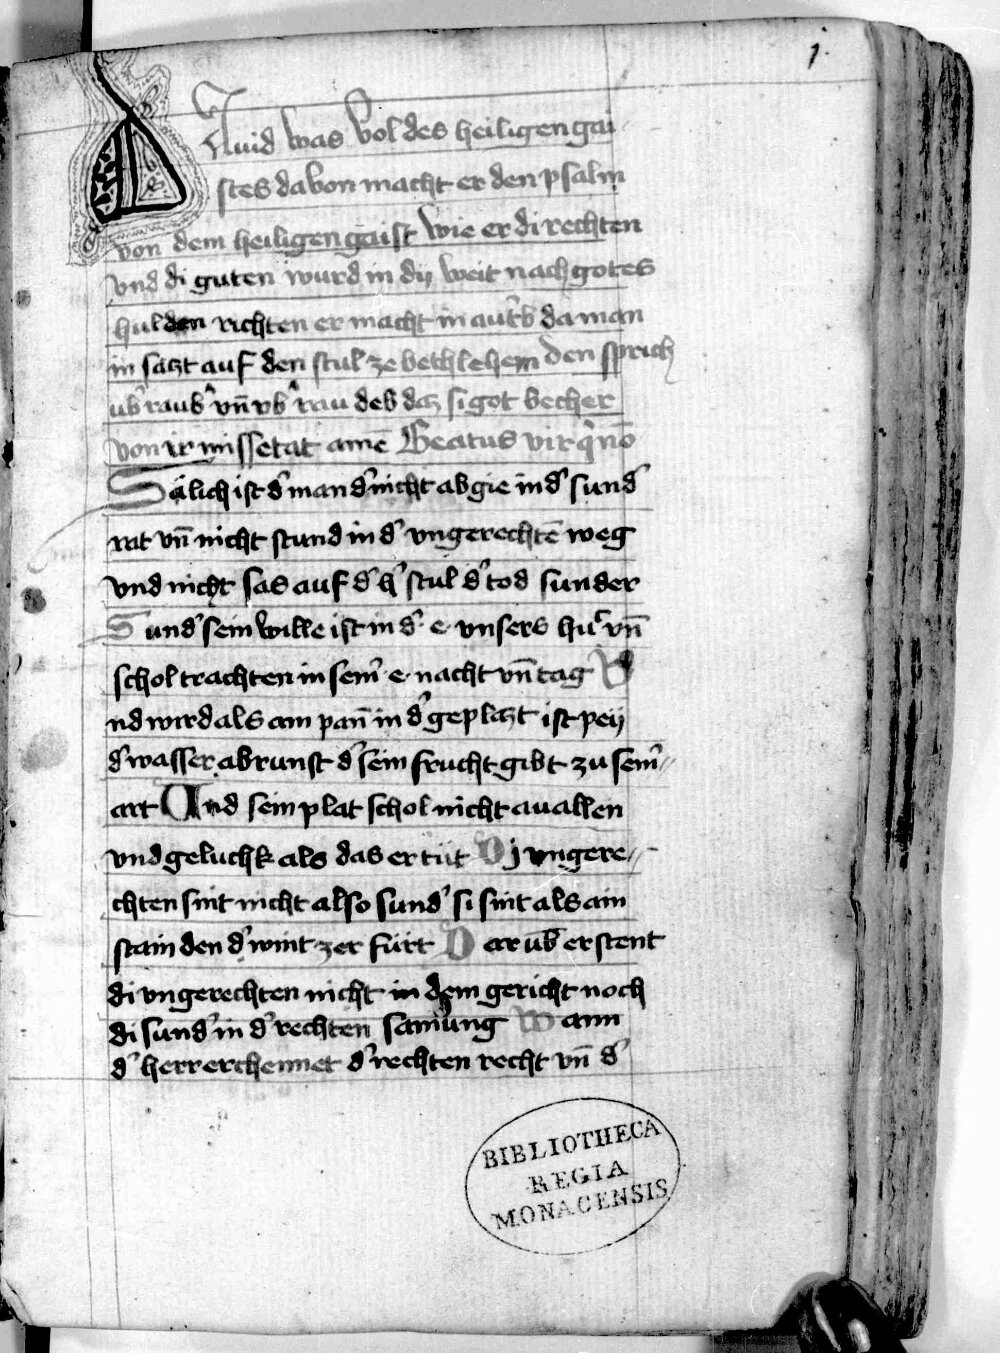 1.
Dauid was vol des heiligen gai
stes dabon macht er den psalm
von dem heiligen gaist wie er di rechten
vnd di guten wurd in dy weit nach gotes
hulden richten er macht in aůch da man
in saczt auf den stul ze bethlehem den sprich
vb' raub' vn̄ vb' rau deb daz si got becher
von ir missetat amē Beatus vir q̓ nō
Sälich ist d' man d' nicht abgie in d' sund'
rat vn̄ nicht stund in d' vngerechtē weg
vnd nicht sas auf d' h' stul d' tod sunder
Sund' sein wille ist in d' e vnsers h'r vn̄
schol trachten in sein' e nacht vn̄ tag V
nd wird als ain pan̄ in d' geplazt ist pey
d' wasser abrunst d' sein frucht gibt zu sein'
art Und sein plat schol nicht auallen
vnd geluchk als das er tüt Dj vngere
chten sint nicht also sund' si sint als ain
stain den d' wint zer fürt Dar vb̄ erstent
di vngerechten nicht in dem gericht noch
di sund' in d' rechten samūng Wann
d' herr erchennet d' rechten recht vn̄ d'
BIBLIOTHECA
REGIA
MONACENSIS